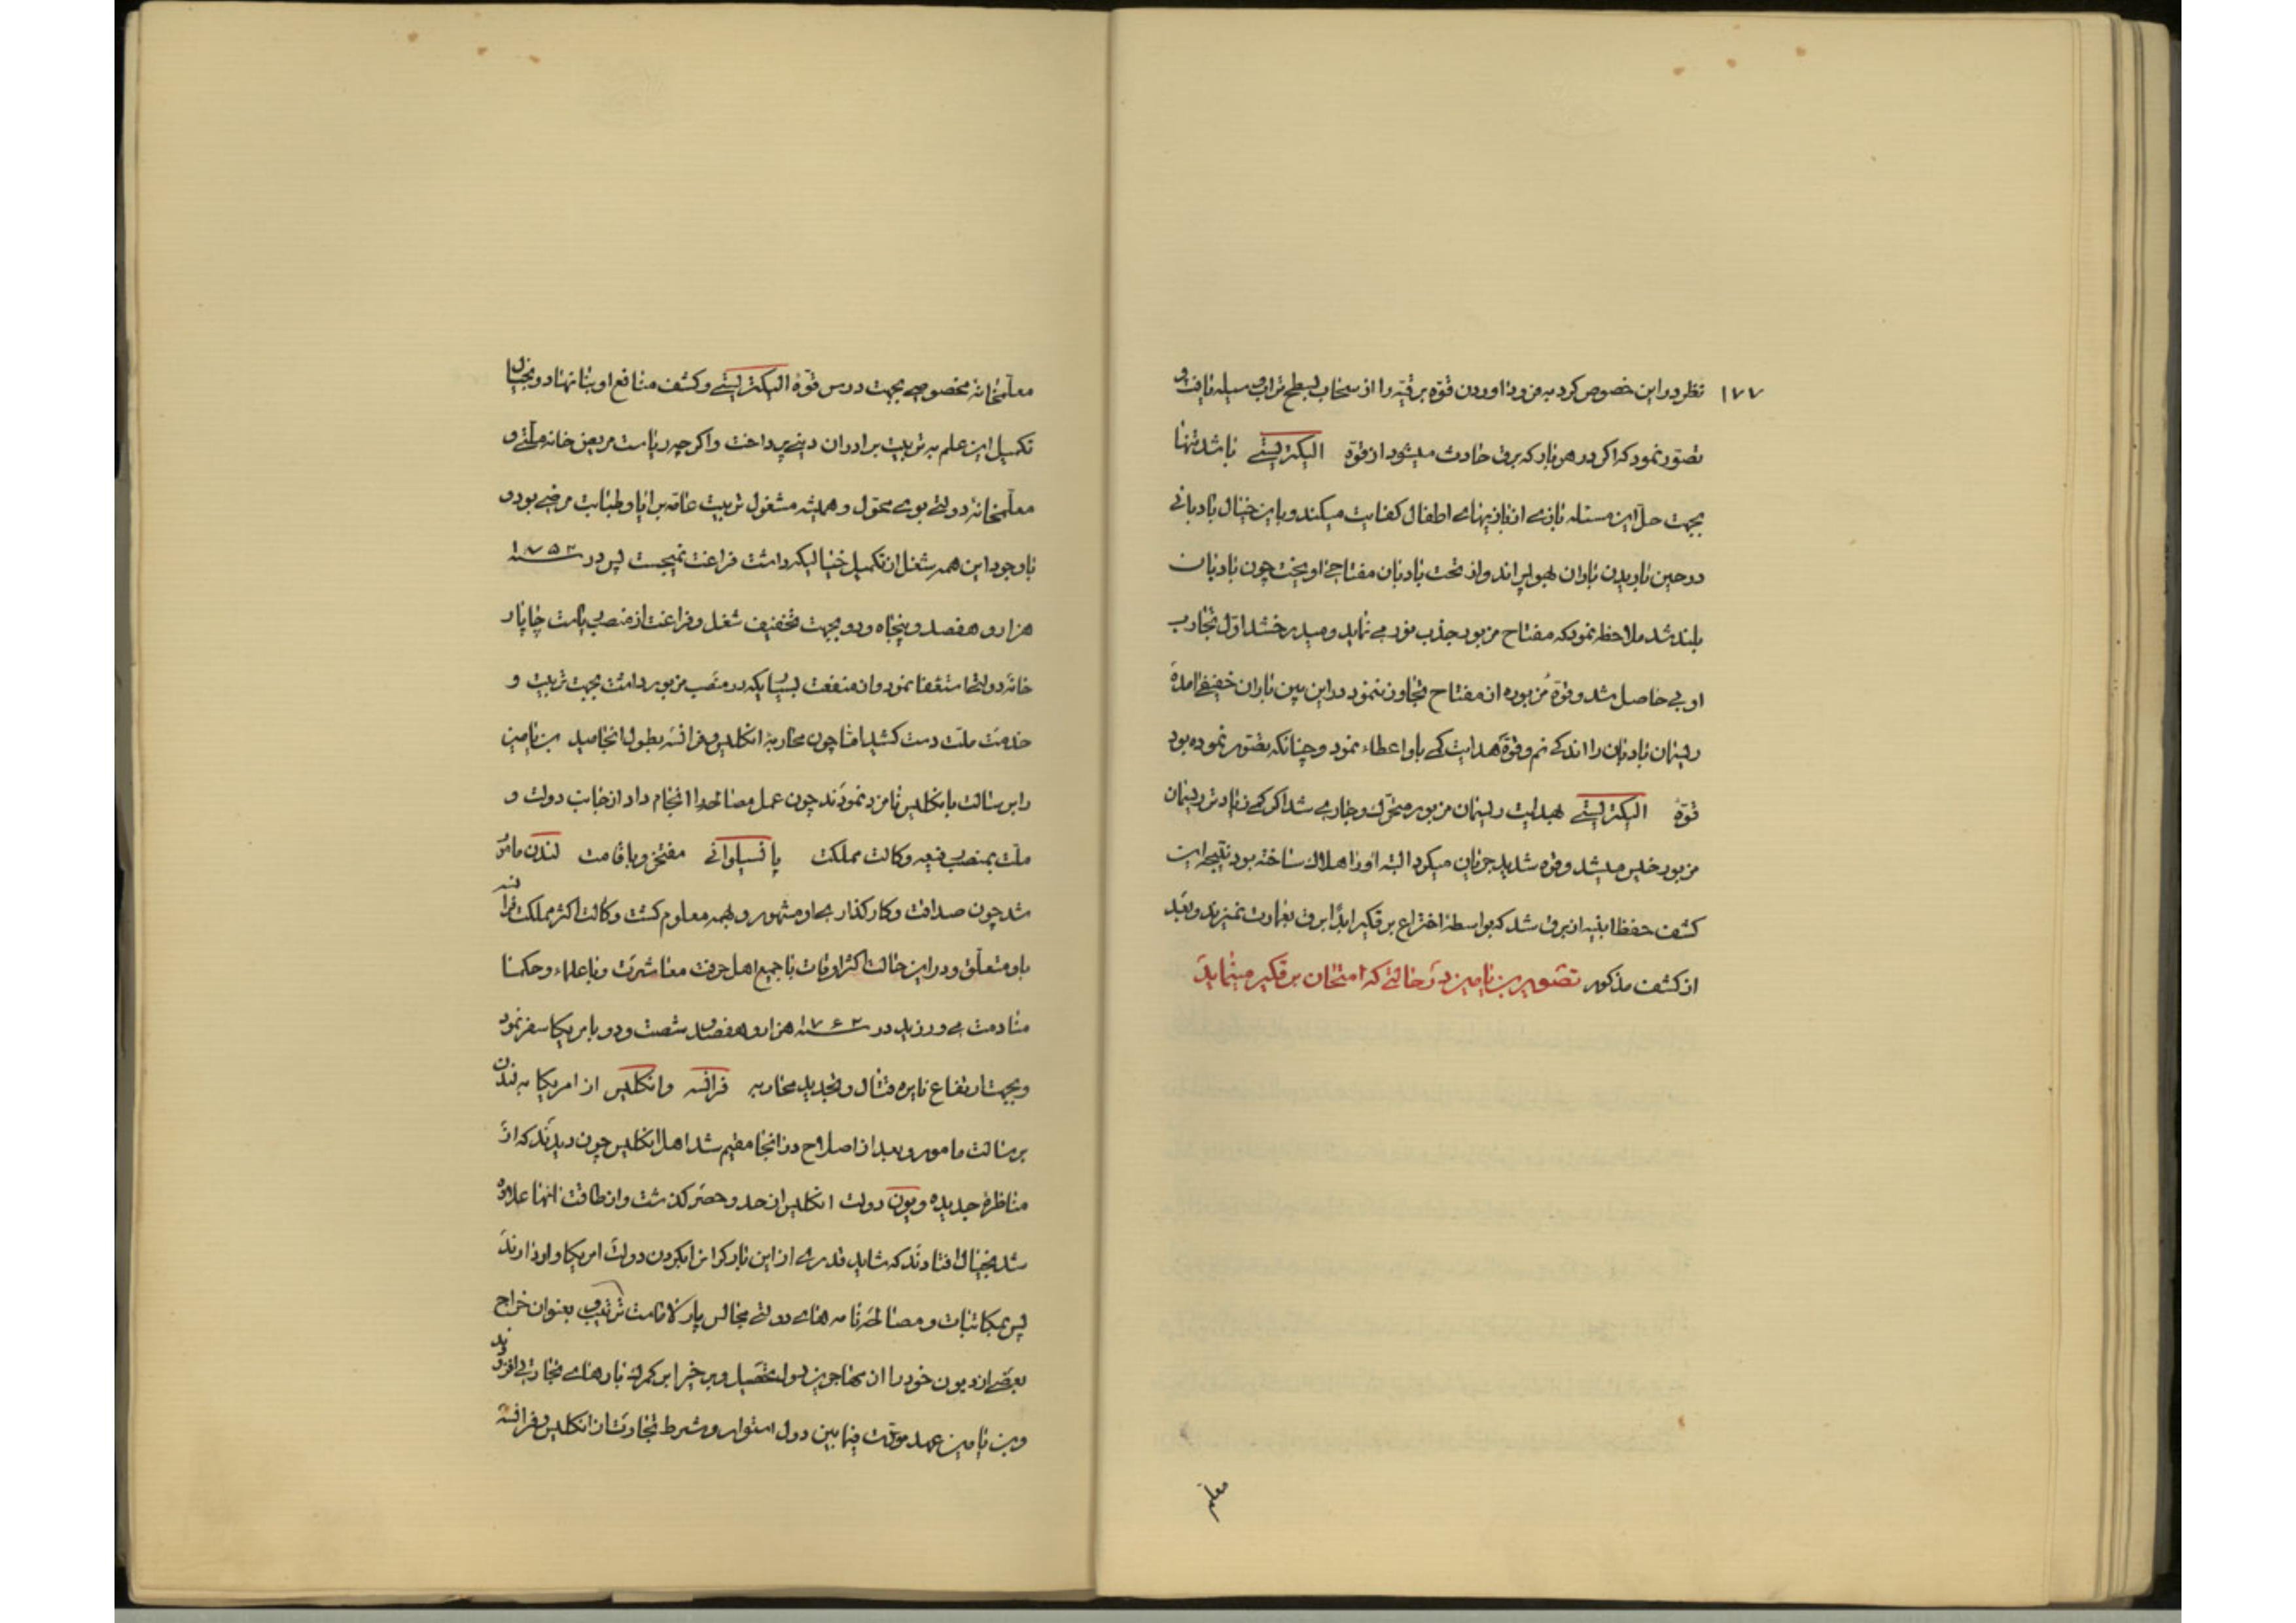 ۱۷۷ نظر در این خصوص کرد به فرود اوردن قوّه برقیّه را از سحاب بسطح تراب وسیله یافت و
تصوّر نمود که اگر در هر بار که برق حادث میشود از قوّه الیکتریسیتے باشد تنها
بجهت حلّ این مسئله بازے از بازیهاے اطفال کفایت میکند و باین خیال بادبانی
در حین باریدن باران بهوا پراند و از تحت بادبان مفتاحے اویخت چون بادبان
بلند شد ملاحظه نمود که مفتاح مزبور جذب نور مے نماید و میدرخشد اوّل تجارب
او بے حاصل شد و قوّه مزبوره از مفتاح تجاوز ننمود در این بین باران خفیفے امده
ریسمان بادبان را اندکے نم و قوّه هدایت کے باو اعطاء نمود و چنانکه تصّور نموده بود
قوّهٔ الیکتریسیتے بهدایت ریسمان مزبور متحرّک و جارے شد اگر کے زیادتر ریسمان
مزبور خیس میشد و قوه شدید جریان میکرد البته او را هلاک ساخته بود نتیجه این
کشف حفظ ابنیه از برق شد که بواسطهٔ اختراع برقگیر ابدًا برق بعمارت نمیزند و بعد
از کشف مذکور تصویر بن یامین در حالتے که امتحان برقگیر مینماید
معلّم
معلّمخانهٔ مخصوصے بجهت درس قوّهٔ الیکتریسیتے و کشف منافع او بنا نهاد و بخیال
تکمیل این علم به تربیت برادران دینے پرداخت و اگر چه ریاست مریض خانه ملّتے و
معلّمخانهٔ دولتے بوے محوّل و همیشه مشغول تربیت عامّه برایا و طبابت مرضے بود و
باوجود این همه شغل از تکمیل خیالیکه داشت فراغت نمیجست پس در سنه ۱۷۵۲
هزار و هفصد و پنجاه و دو بجهت تخفیف شغل و فراغت از منصب ریاست چاپار
خانهٔ دولتے استعفا نمود و از منفعت بسیاریکه در منصب مزبور داشت بجهت تربیت و
خدمت ملّت دست کشید امّا چون محاربهٔ انگلیس و فرانسه بطول انجامید بن یامین
را برسالت بانگلیس نامزد نمودند چون عمل مصالحه را انجام داد از جانب دولت و
ملّت بمنصب رفیع وکالت مملکت پانسیلوانے مفتخر و باقامت لندن مامور
شد چون صداقت و کارگذارے او مشهور و بهمه معلوم گشت وکالت اکثر مملکت فرانسه
باو متعلّق و در این حالت اکثر اوقات با جمیع اهل حرفت معاشرت و با علماء و حکما
منادمت مے ورزید در سنه ۱۷۶۲ هزار و هفصد و شصت و دو بامریکا سفر نمود
و بجهت ارتفاع نایره قتال و تجدید محاربه فرانسه و انگلیس از امریکا به لندن
برسالت مامور و بعد از اصلاح در انجا مقیم شد اهل انگلیس چون دیدند که از
مناظرهٔ جدیده و یون دولت انگلیس از حد و حصر گذشت و از طاقت انها علاوه
شد بخیال افتادند که شاید قدرے از این بار گران را بگردن دولت امریکا وارد اورند
پس بمکاتبات و مصالحه نامه هاے دولتے مجالس پارلامنت ترتیب و بعنوان خراج
بعضے از دیون خود را از مهاجرین تحصیل و بر خیر ابر گمرک بارهاے تجارتے افزودند
و بن یامین عهد موقّت فیما بین دول استوار و شرط تجارت از انگلیس و فرانسه